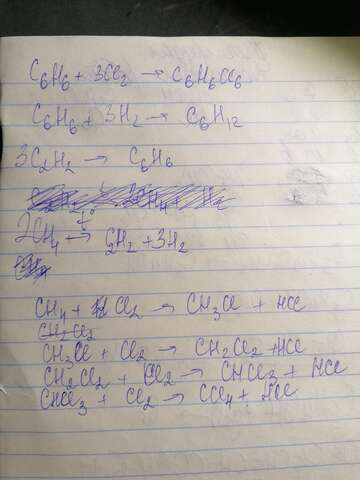 C₆H₆ + 3Cl₂ → C₆H₆Cl₆
C₆H₆ + 3H₂ → C₆H₁₂
3C₂H₂ → C₆H₆
2CH₄ →t° C₂H₂ + 3H₂
CH₄ + Cl₂ → CH₃Cl + HCl
CH₂Cl₂
CH₃Cl + Cl₂ → CH₂Cl₂ + HCl
CH₂Cl₂ + Cl₂ → CHCl₃ + HCl
CHCl₃ + Cl₂ → CCl₄ + HCl